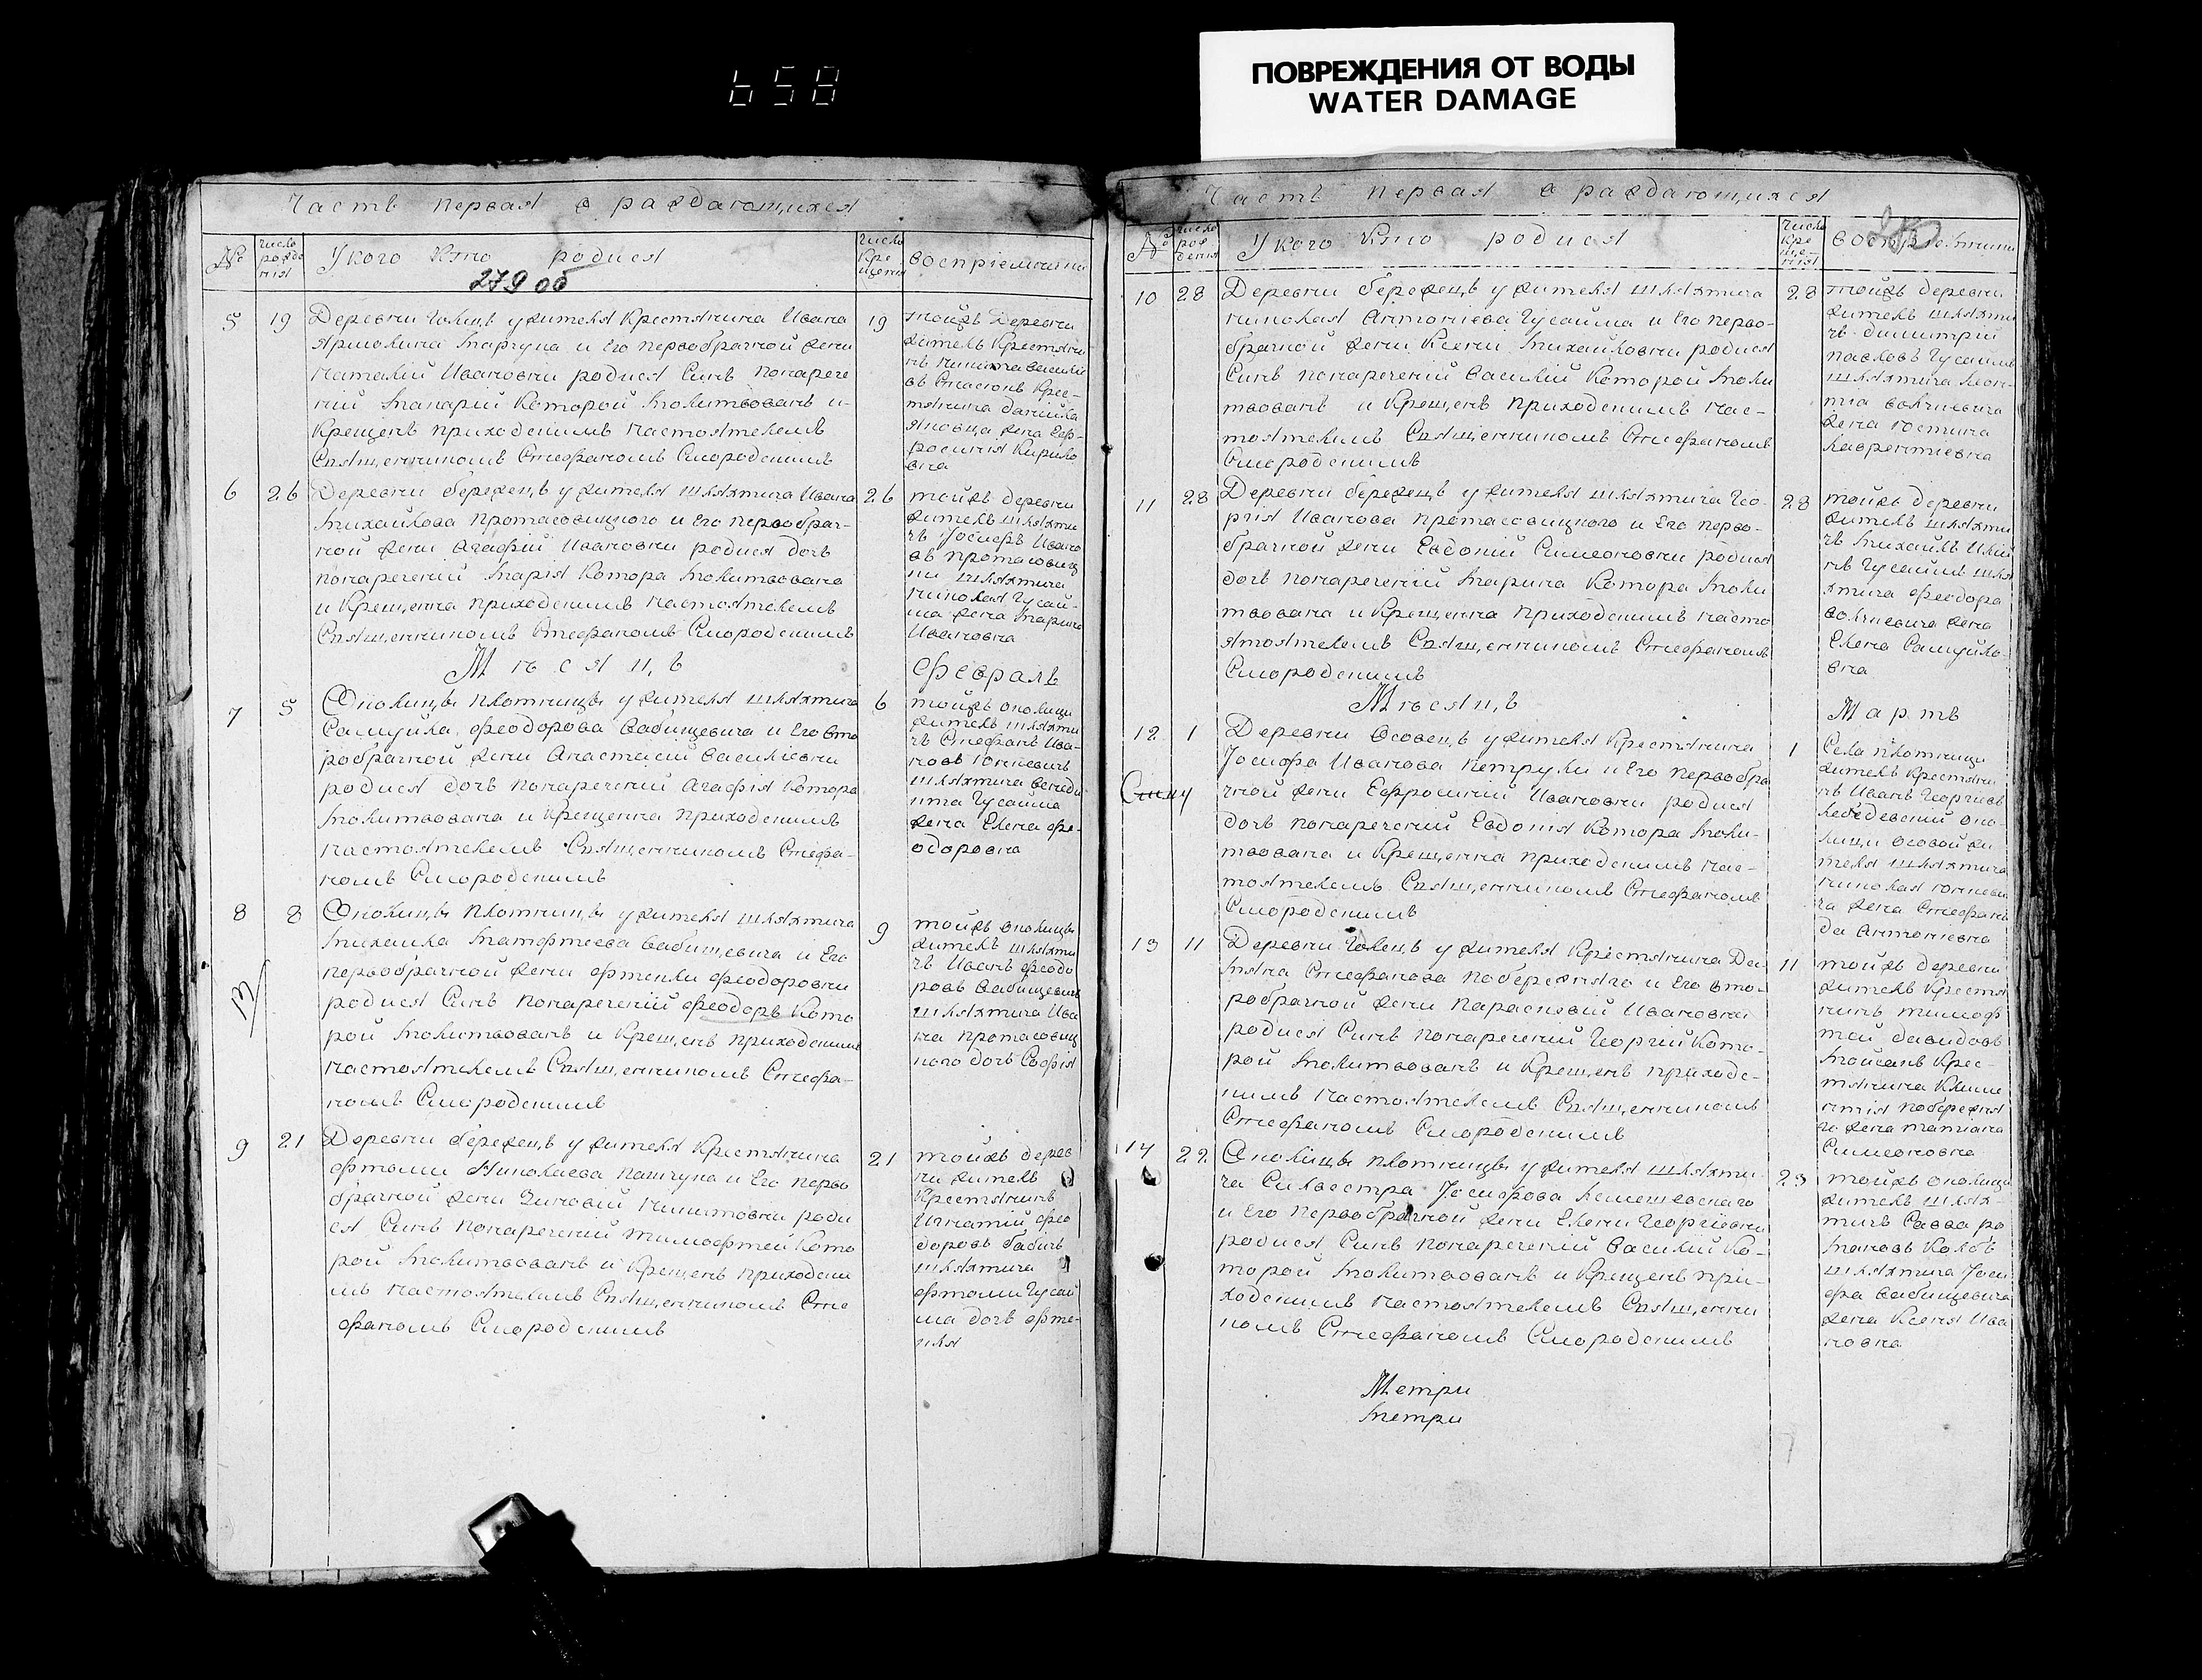 658
ПОВРЕЖДЕНИЯ ОТ ВОДЫ
WATER DAMAGE
Часть первая о раждающихся
№
Число рожде нія
У кого Кто родися
279 об
Число Кре щенія
восприемники
5
19
Деревни Голецъ у жителя Крестянина Ивана
и Его первобрачной жени
Наталіи Ивановни родися Синъ Нонаречен
ній Макарій Которой Молитвованъ и
Крещенъ приходскимъ настоятелемъ
Священникомъ Стефаномъ Смородскимъ
19
тойжъ Деревни
житель Крестяни
нъ
Крес-
тянина Данійла
жена Евф-
росинія Кирило
вна
6
26
Деревни бережецъ у жителя шляхтича Ивана
Михайлова Протасовицкого и Его первобрач-
ной жени Агафіи Ивановни родися дочъ
нонареченій Марія Котора Молитвована
и Крещенна приходскимъ настоятелемъ
Священникомъ Стефаномъ Смородскимъ
26
тойжъ деревни
житель шляхти
чъ Іосифъ Ивано
въ протасовиц
кій шляхтича
николая Гусай-
ма жена Марина
Ивановна
Мѣсяцъ
Февраль
7
5
Околици плотници у жителя шляхтича
Самуйла Феодорова Вабищевича и Его вто
робрачной жени Анастасіи Василіевни
родися дочъ нонареченій Агафія Котора
Молитвована и Крещенна приходскимъ
настоятелемъ Священникомъ Стефа-
номъ Смородскимъ
6
тойжъ околици
житель шляхти
чъ Стефанъ Ива-
новъ
шляхтича венеди
кта Гусайма
жена Елена Фе-
одоровна
8
8
Околици плотници у жителя шляхтича
Михаила Матфтеева Вабищевича и Его
первобрачной жени Фтекли Феодоровни
родися Синъ нонареченій Феодоръ Кото
рой Молитвованъ и Крещенъ приходскимъ
настоятелемъ Священникомъ Стефа-
номъ Смородскимъ
9
тойжъ околици
житель шляхти
чъ Иванъ Феодо
ровъ Вабищевичъ
шляхтича Ива
на протасовиц
кого дочъ Софія
9
21
Деревни бережецъ у жителя Крестянина
Фтоми Николаева Пашчука и Его перво
брачной жени Зиновіи Никитовни роди
ся Синъ нонареченій Тимофтей Кото
рой Молитвованъ и Крещенъ приходски
мъ настоятелемъ Священникомъ Сте
фаномъ Смородскимъ
21
тойжъ дерев
ни житель
Крестянинъ
Игнатій Фео
доровъ бабичъ
шляхтича
Фтоми Гусай
ма дочъ Фте-
кля
Часть первая о раждающихся
№
Число рождения
У кого Кто родися
Число Кре ще-нія
восприемники
10
28
Деревни бережецъ у жителя шляхтича
николая Антоніева Гусайма и Его перво-
брачной жени Ксени Михайловни родися
Синъ нонареченій Василій Которой Моли
твованъ и Крещенъ приходскимъ нас-
тоятелемъ Священникомъ Стефаномъ
Смородскимъ
28
тойжъ деревни
житель шляхти
чъ димитрій
павловъ Гусаимъ
шляхтича леон-
тіа волчкевича
жена Юстина
лаврентіевна
11
28
Деревни бережецъ у жителя шляхтича Гео-
ргія Иванова протасовицкого и Его перво-
брачной жени Евдокій Симеоновни родися
дочъ нонареченій Марина Котора Моли
твована и Крещенна приходскимъ насто
ятоятелемъ Священникомъ Стефаномъ
Смородскимъ
28
тойжъ деревни
житель шляхти
чъ Михаилъ
Гусаимъ шля
хтича Феодора
волчкевича жена
Елена Самуйло-
вна
Мѣсяцъ
Мартъ
12
1
Деревни Осовецъ у жителя Крестянина
Іосифа Иванова Петруки и Его первобра
чной жени Евфросиніи Ивановни родися
дочъ нонареченій Евдокія Котора Моли-
твована и Крещенна приходскимъ нас-
тоятелемъ Священникомъ Стефаномъ
Смородскимъ
1
Села плотници
житель Крестяни
нъ Иванъ Георгіевъ
око-
лици осовой жи
теля шляхтича
николая
жена Стефани
да Антоніевна
13
11
Деревни Голецъ у жителя Крестянина Де
Стефанова Побережняго и Его вто-
робрачной жени Параскевій Ивановни
родися Синъ нонареченій Георгій Кото-
рой Молитвованъ и Крещенъ приходс-
кимъ настоятелемъ Священникомъ
Стефаномъ Смородскимъ
11
тойжъ деревни
житель Крестя
нинъ тимоф
тей давидовъ
Крес-
тянина Климе
нтія побережня
го жена татиана
Симеоновна
14
22
Околици плотници у жителя шляхти-
ча Силвестра Іосифова
и Его первобрачной жени Елени Георгіевни
родися Синъ нонареченій Василій Ко-
торой Молитвованъ и Крещенъ при-
ходскимъ настоятелемъ Священни
комъ Стефаномъ Смородскимъ
23
тойжъ околици
житель шлях-
тичъ Савва ро
мановъ Колбъ
шляхтича Іоси
фа Вабищевича
жена Ксения Ива
новна
Метри
Метри